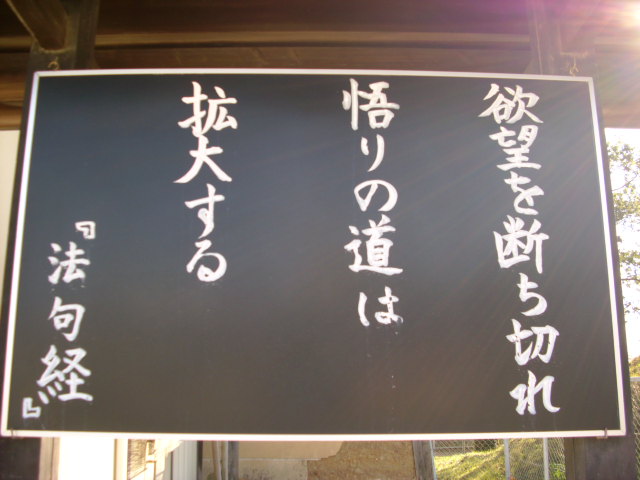 欲望を断ち切れ
悟りの道は
拡大する
『法句経』